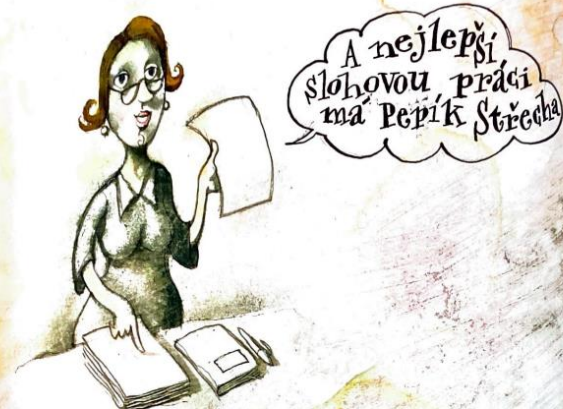 A nejlepší
slohovou práci
má Pepík Střecha